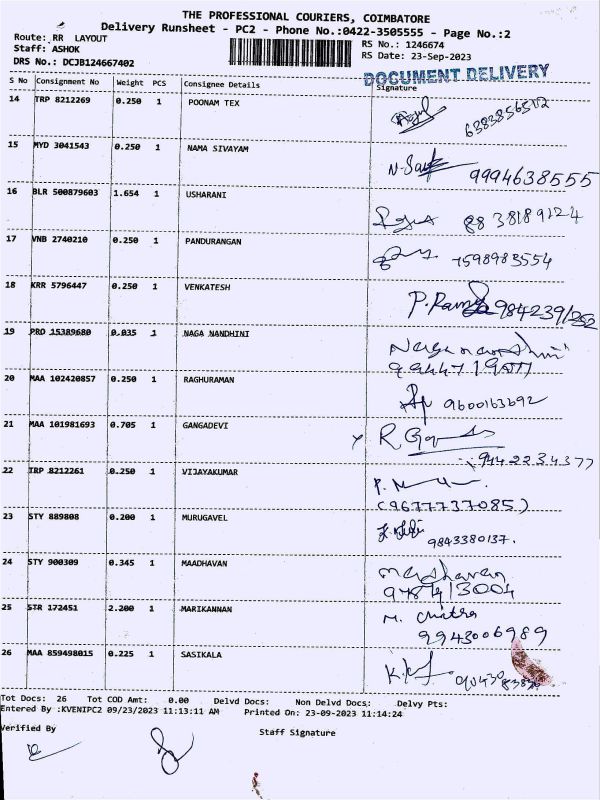 THE PROFESSIONAL COURIERS, COIMBATORE
Delivery Runsheet - PC2 - Phone No.:0422-3505555 - Page No.:2
Route: RR LAYOUT
RS No.: 1246674
Staff: ASHOK
RS Date: 23-Sep-2023
DRS No.: DCJB124667402
DOCUMENT DELIVERY
S No Consignment No Weight PCS Consignee Details Signature
14 TRP 8212269 0.250 1 POONAM TEX
6383856512
15 MYD 3041543 0.250 1 NAMA SIVAYAM
9994638555
16 BLR 500879603 1.654 1 USHARANI
17 VNB 2740210 0.250 1 PANDURANGAN
7598983554
18 KRR 5796447 0.250 1 VENKATESH
19 PRO 15389680 0.035 1 NAGA NANDHINI
20 MAA 102420857 0.250 1 RAGHURAMAN
9600163692
21 MAA 101981693 0.705 1 GANGADEVI
9442234377
22 TRP 8212261 0.250 1 VIJAYAKUMAR
(9677737085)
23 STY 889808 0.200 1 MURUGAVEL
9843380137.
24 STY 900309 0.345 1 MAADHAVAN
Madhavan
25 STR 172451 2.200 1 MARIKANNAN
M. Chitra
9943006989
26 MAA 859498015 0.225 1 SASIKALA
Tot Docs: 26 Tot COD Amt: 0.00 Delvd Docs: Non Delvd Docs: Delvy Pts:
Entered By :KVENIPC2 09/23/2023 11:13:11 AM Printed On: 23-09-2023 11:14:24
Verified By
Staff Signature